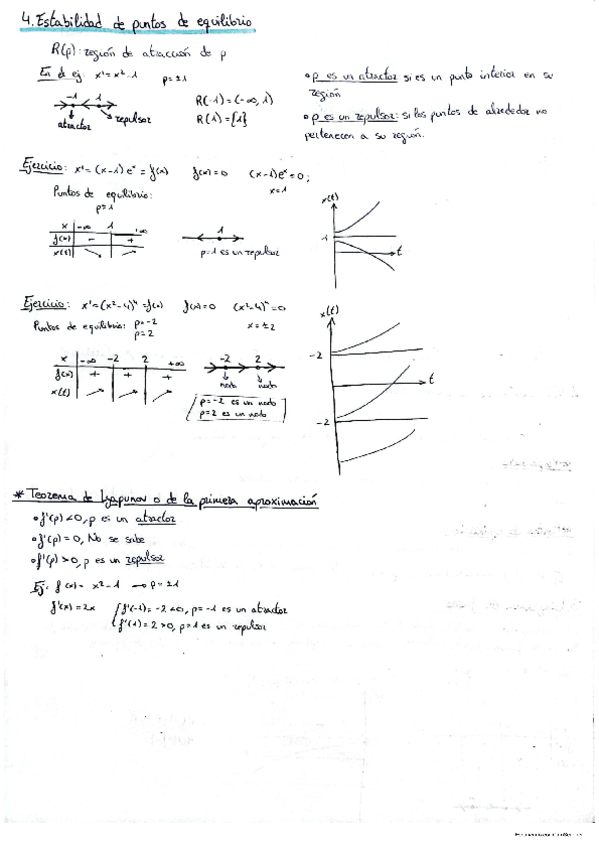 4. Estabilidad de puntos de equilibrio
R(p): región de atracción de p
En el ej: x' = x²-1    p = ±1
-1    1
atractor    repulsor
R(-1) = (-∞, 1)
R(1) = {1}
• p es un atractor si es un punto interior en su
región
• p es un repulsor: si los puntos de alrededor no
pertenecen a su región.
Ejercicio: x' = (x-1)eˣ = f(x)    f(x) = 0    (x-1)eˣ = 0;
x = 1
Puntos de equilibrio:
p = 1
x    -∞    1    +∞
f(x)    -    +
x(t)
1
p=1 es un repulsor
x(t)
1
t
Ejercicio: x' = (x²-4)⁴ = f(x)    f(x) = 0    (x²-4)⁴ = 0
x = ±2
Puntos de equilibrio: p = -2
p = 2
x    -∞    -2    2    +∞
f(x)    +    +    +
x(t)
-2    2
nodo    nodo
p = -2 es un nodo
p = 2 es un nodo
x(t)
-2
t
-2
* Teorema de Lyapunov o de la primera aproximación
• f'(p) < 0, p es un atractor
• f'(p) = 0, No se sabe
• f'(p) > 0, p es un repulsor
Ej: f(x) = x²-1 → p = ±1
f'(x) = 2x    f'(-1) = -2 < 0, p = -1 es un atractor
f'(1) = 2 > 0, p = 1 es un repulsor